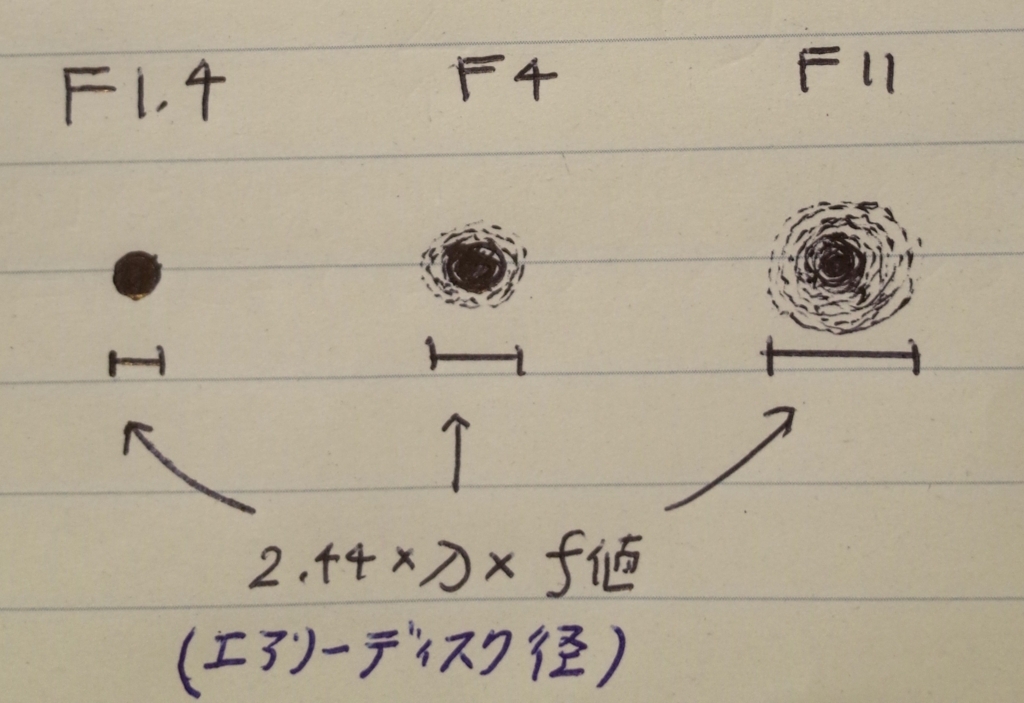 F1.4 F4 F11
2.44×λ×f値
(エアリーディスク径)